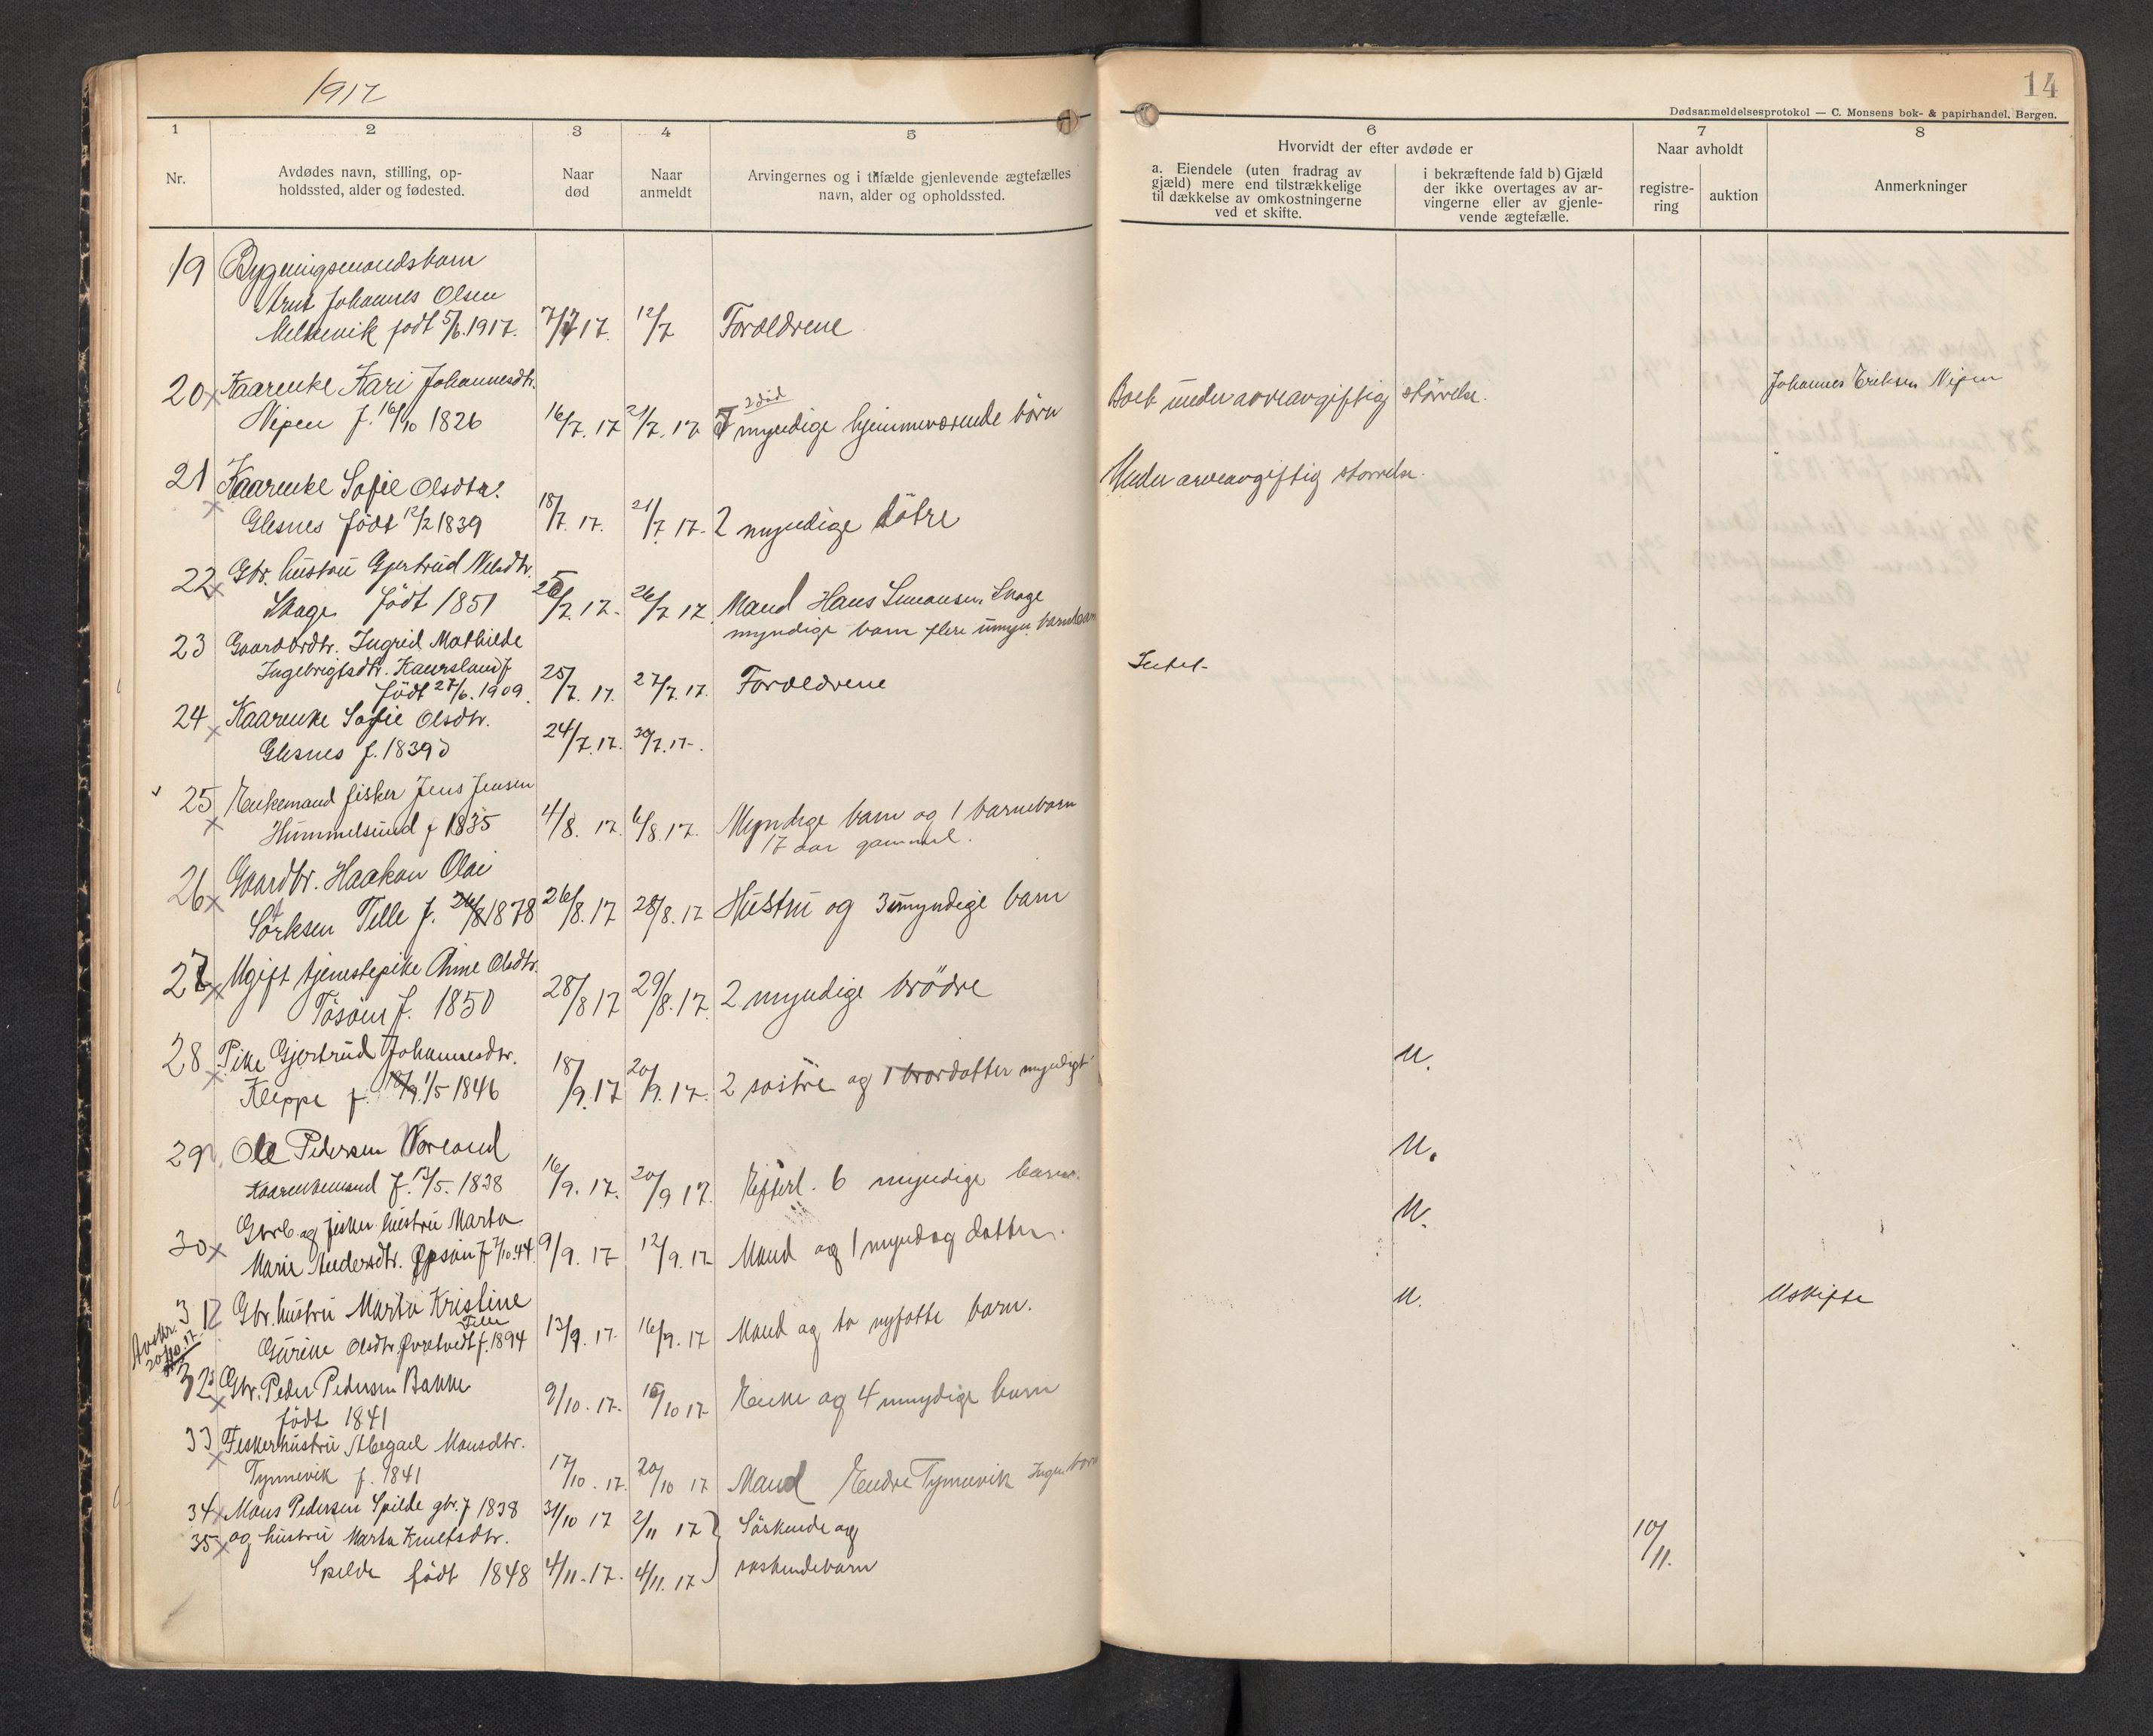 1917
14
Dødsanmeldelsesprotokol — C. Monsens bok- & papirhandel. Bergen.
1
2
3
4
5
6
7
8
Nr.
Avdødes navn, stilling, op-
holdssted, alder og fødested.
Naar
død
Naar
anmeldt
Arvingernes og i tilfælde gjenlevende ægtefælles
navn, alder og opholdssted.
Hvorvidt der efter avdøde er
a. Eiendele (uten fradrag av
gjæld) mere end tilstrækkelige
til dækkelse av omkostningerne
ved et skifte.
i bekræftende fald b) Gjæld
der ikke overtages av ar-
vingerne eller av gjenle-
vende ægtefælle.
Naar avholdt
registre-
ring
auktion
Anmerkninger
19 Bygningsmandsbarn
Johannes Olsen
født 5/6.1917. 7/7 17. 12/7 Forældrene
20 x Kaarenke Kari Johannesdtr.
Nipen f. 16/10 1826 16/7. 17 21/7. 17. 2 død
myndige hjemmeværende børn
Boet under arveavgiftig størrelse.
Johannes Eriksen Nipen
21 x Kaarenke Sofie Olsdtr.
Glesnes født 12/2 1839 18/7. 17. 21/7. 17. 2 myndige døtre
Under arveavgiftig størrelse.
22 x Gbr. hustru Gjertrud Nelsdtr.
Skage født 1851 25/7. 17. 26/7 17. Mand Hans Simonsen Skage
myndige barn flere umyn. barnebarn
23 Gaardbrdtr. Ingrid Mathilde
Ingebrigtsdtr. Kaursland f
født 27/6. 1909. 25/7. 17. 27/7. 17. Forældrene
Intet
24 x Kaarenke Sofie Olsdtr.
Glesnes f. 1839 24/7. 17. 30/7. 17.
25 x Enkemand fisker Jens Jensen
Hummelsund f 1835 4/8. 17. 6/8. 17. Myndige barn og 1 barnebarn
17 aar gammel.
26 x Gaardbr. Haakon Olai
Sørksen Telle f. 26/8 1878 26/8. 17 28/8. 17 Hustru og 3 umyndige barn
27 x Ugift tjenestepike Anne Olsdtr.
Tøsøen f. 1850 28/8 17 29/8. 17. 2 myndige brödre
28 x Pike Gjertrud Johannesdtr.
Kleppe f. 18/9 1/5 1846 18/9. 17 20/9. 17. 2 søstre og 1 brordatter myndigt
U.
29 Ole Pedersen Vorland
Kaarenkemand f. 12/5. 1838 16/9. 17. 20/9 17. Efterl. 6 myndige barn.
U.
30 x Gbr. og fisker hustru Marta
Marie Andersdtr. Opsøen f 7/10.44. 9/9. 17 12/9. 17 Mand og 1 myndog datter.
U.
31 Gbr. hustru Marta Kristine
Telle
Gurine Olsdtr. Øvretvedt f. 1894 13/9. 17. 16/9. 17 Mand og to nyfødte barn.
U.
Uskifte
Avskr.
20/10. 17.
32 x Gbr. Peder Pedersen Bakke
født 1841 9/10. 17. 15/10 17 Enke og 4 myndige barn
33 x Fiskerhustru Abegael Monsdtr.
Tyrnevik f. 1841 17/10. 17. 20/10 17 Mand Endre Tyrnevik Ingen barn
34 x Mons Pedersen Spilde gbr. f 1838 31/10 17 2/11 17 } Söskende og
35 x og hustru Marta Knutsdtr.
Spilde født 1848 4/11. 17. 4/11. 17 søskendebarn
10/11.